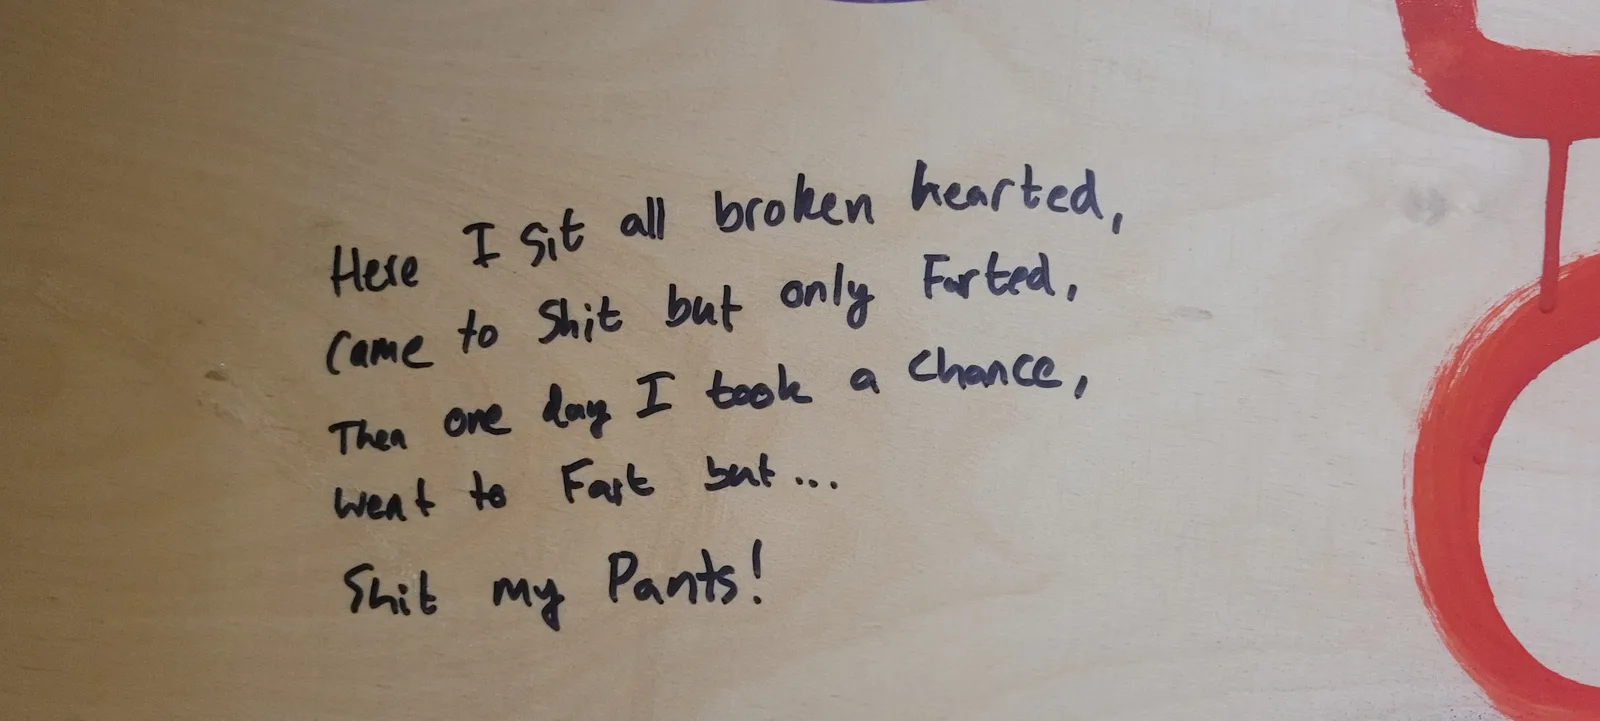 Here I sit all broken hearted,
Came to Shit but only Farted,
Then one day I took a chance,
went to Fart but...
Shit my Pants!